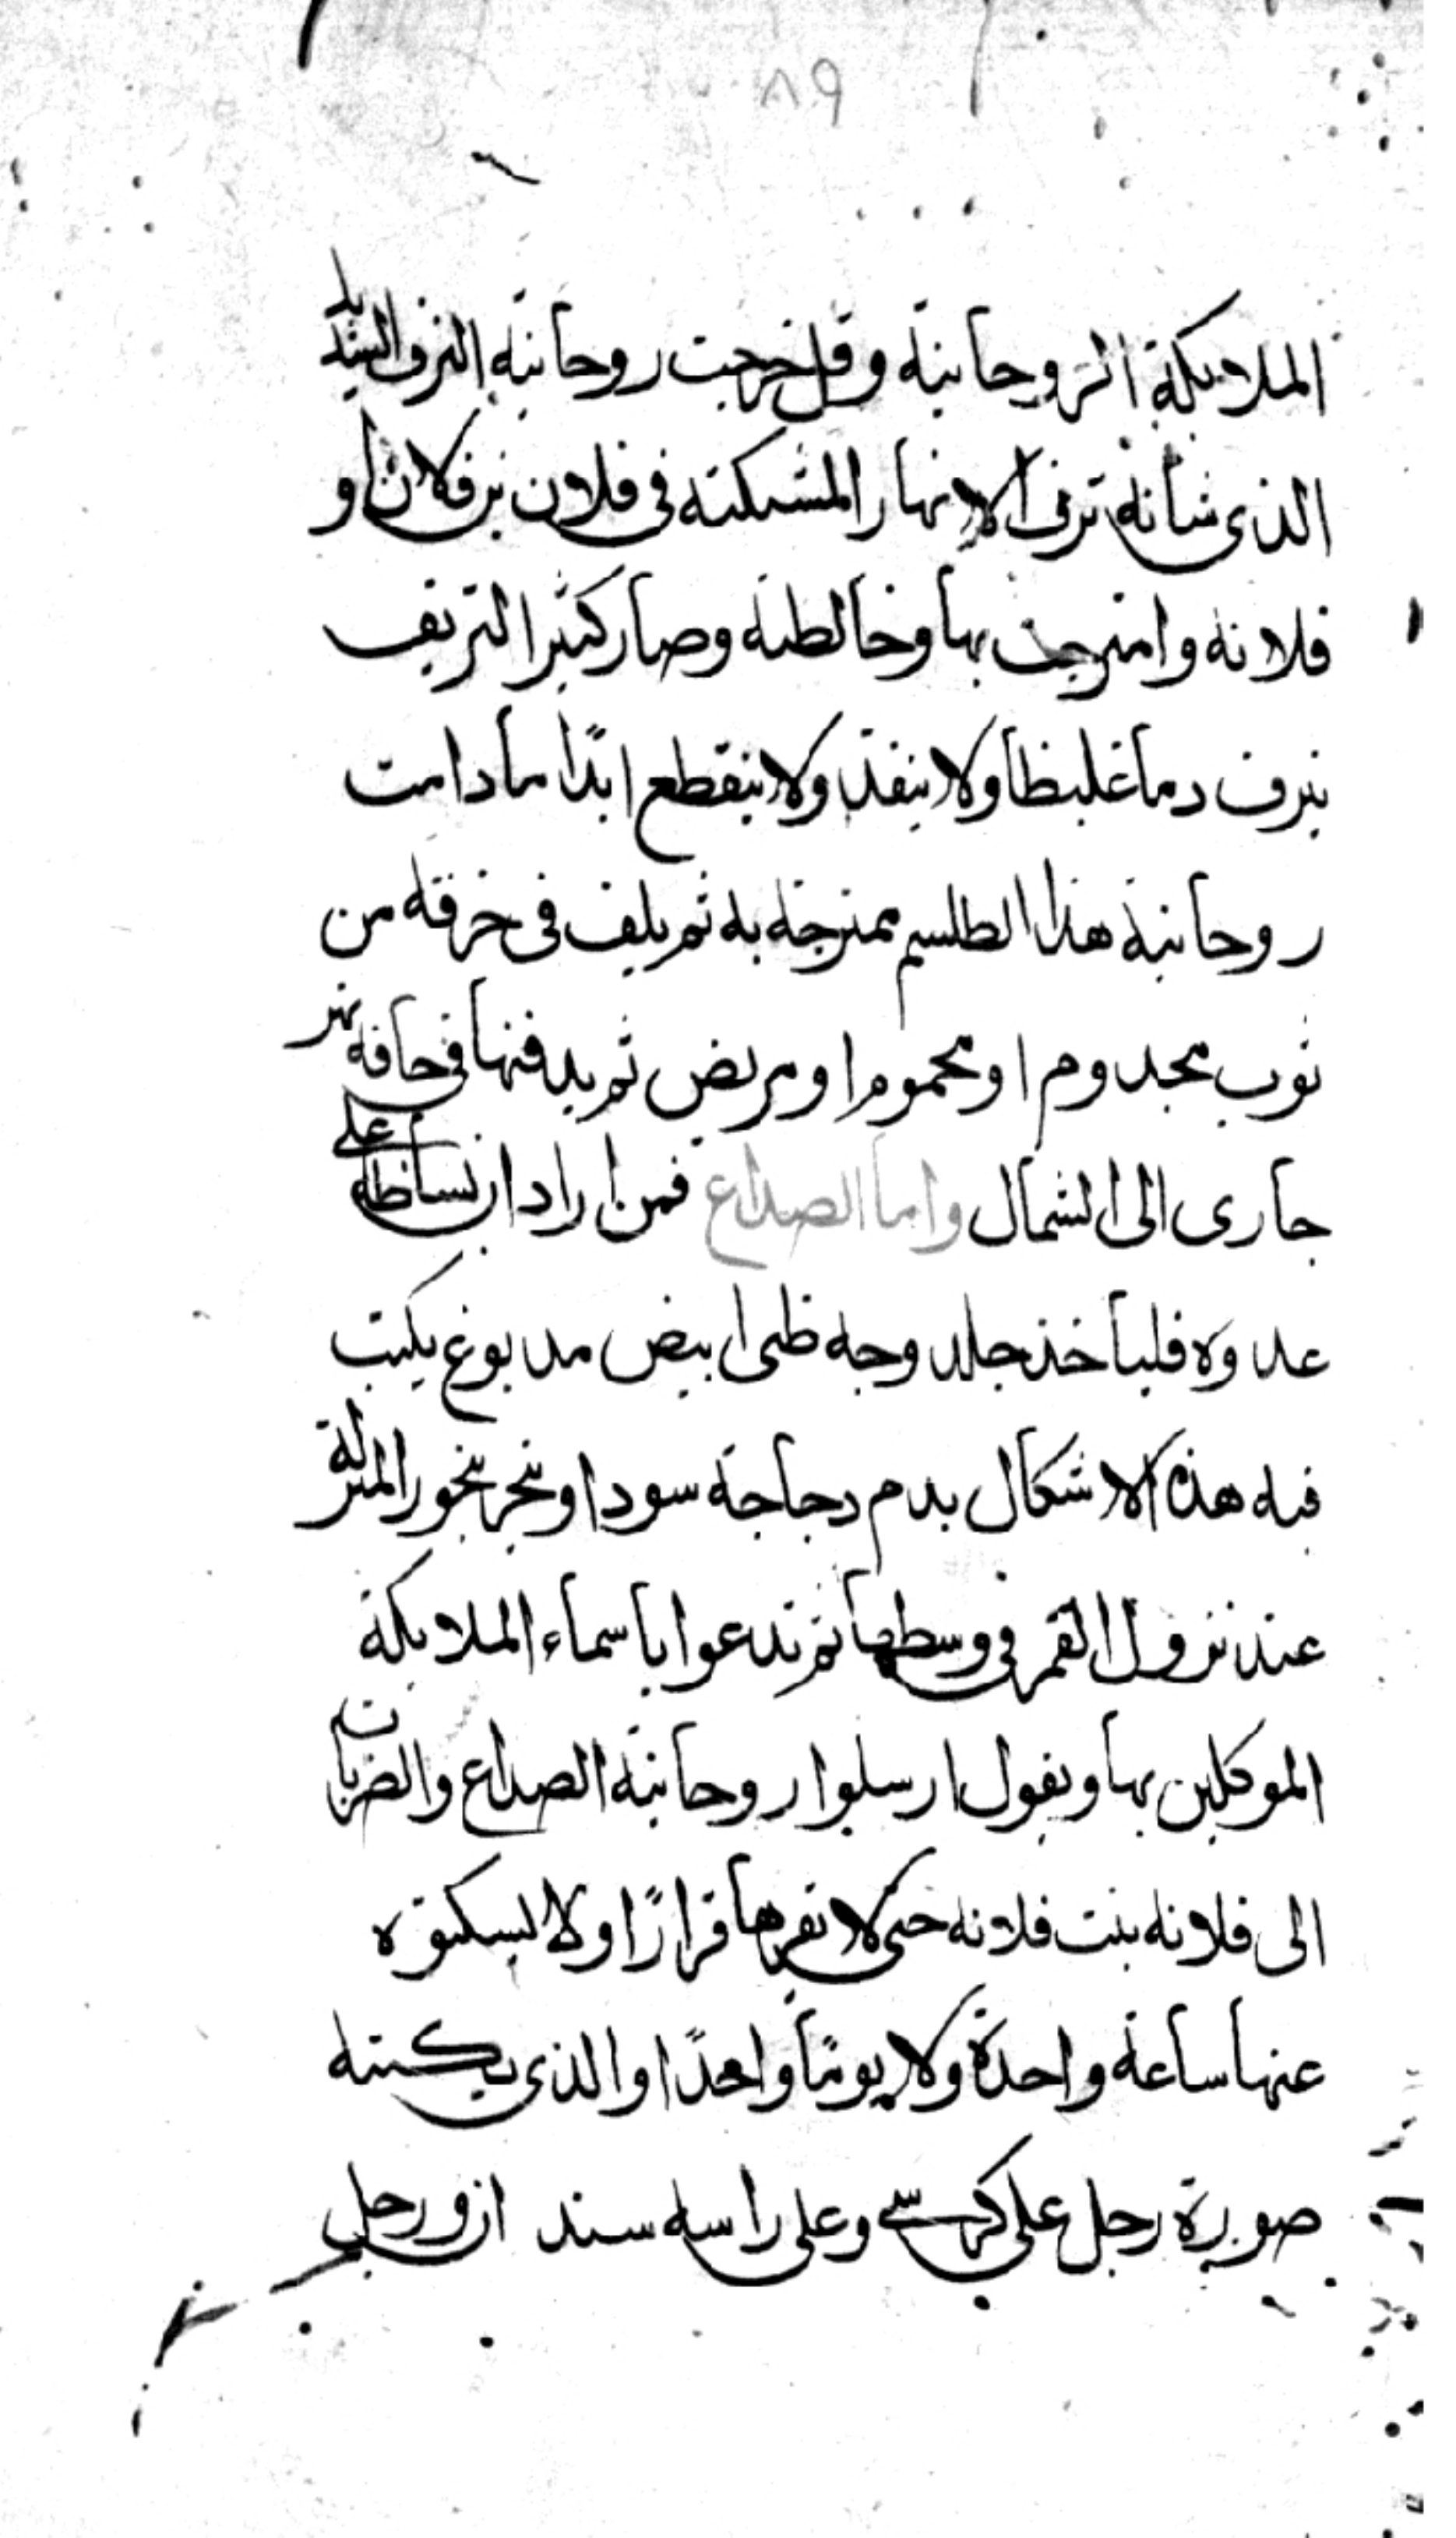 ٨٩
الملائكة الروحانية وقل خرجت روحانية النزف الشديد
الذى شانه نزف الانهار المشبكته فى فلان بن فلان او
فلانه وامتزجت بها وخالطته وصار كثير النزيف
ينزف دما غليظا ولا ينفد ولا ينقطع ابدًا ما دامت
روحانية هذا الطلسم ممتزجة به ثم يلف فى خرقة من
ثوب مجدوم او محموم او مريض ثم يدفنها فى حافة نهر
جارى الى الشمال واما الصداع فمن اراد ان على
عدوه فليأخذ جلد وجه ظبى ابيض مدبوغ يكتب
فيه هذه الاشكال بدم دجاجة سودا ويبخر ببخور المنزلة
عند نزول القمر فى وسطها ثم تدعوا باسماء الملائكة
الموكلين بها ويقول ارسلوا روحانية الصداع والضربات
الى فلانه بنت فلانه حتى لا تقرها قرارًا ولا
عنها ساعة واحدة ولا يومًا واحدًا والذى يكتبه
صورة رجل على كرسى وعلى راسه سند از ورجل